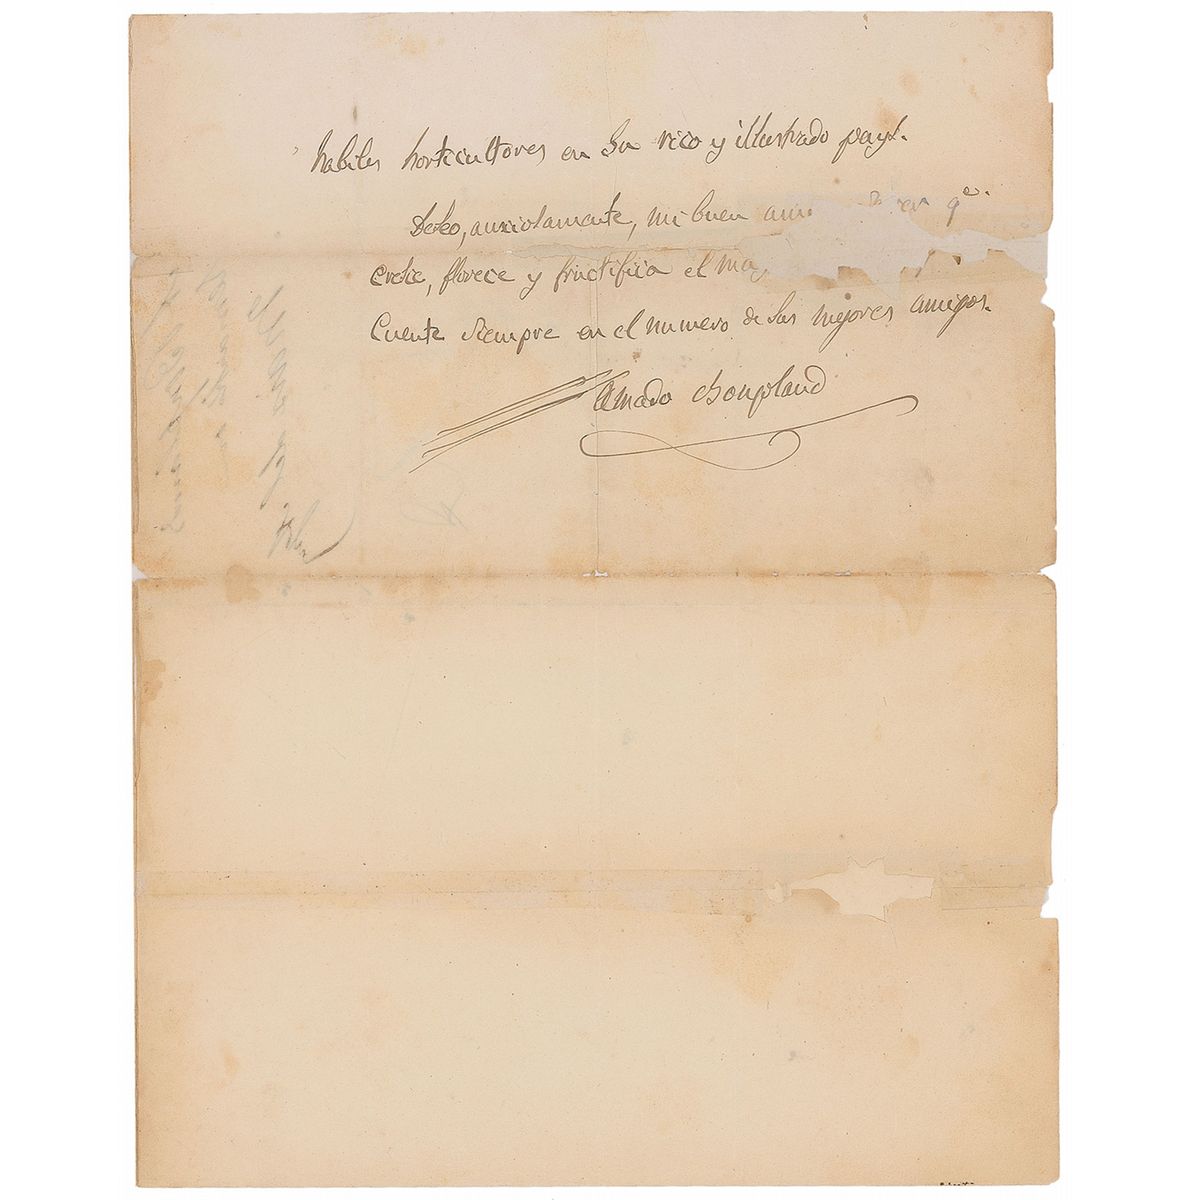 habiles horticultores en su rico y illustrado pays.
Deseo, anxiosamente, mi buen q.e
crece, florece y fructifica el
Cuente siempre en el numero de sus mejores amigos.
Amado Bonpland